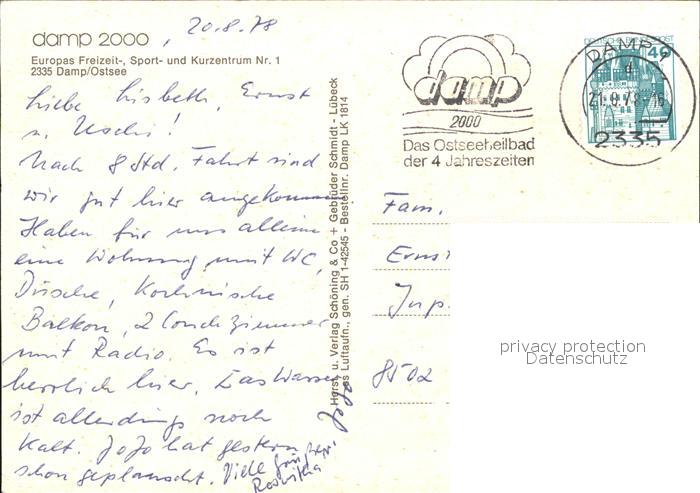 damp 2000, 20.8.78
Europas Freizeit-, Sport- und Kurzentrum Nr. 1
2335 Damp/Ostsee
Liebe Lisbeth, Ernst
u. Uschi!
Nach 8 Std. Fahrt sind
wir gut hier angekommen
Haben für uns alleine
eine Wohnung mit WC,
Dusche, Kochnische
Balkon, 2 Wohnzimmer
mit Radio. Es ist
herrlich hier. Das Wasser
ist allerdings noch
kalt. JoJo hat gestern
schon geplanscht. Viele Grüße
Roswitha
JoJo
Herst. u. Verlag Schöning & Co + Gebrüder Schmidt - Lübeck
ss Luftaufn., gen. SH 1-42545 - Bestellnr. Damp LK 1814
damp
2000
Das Ostseeheilbad
der 4 Jahreszeiten
DEUTSCHE BUNDESPOST
40
DAMP 1
d
21.8.78-16
2335
Fam.
Ernst
Insp.
8502
privacy protection
Datenschutz